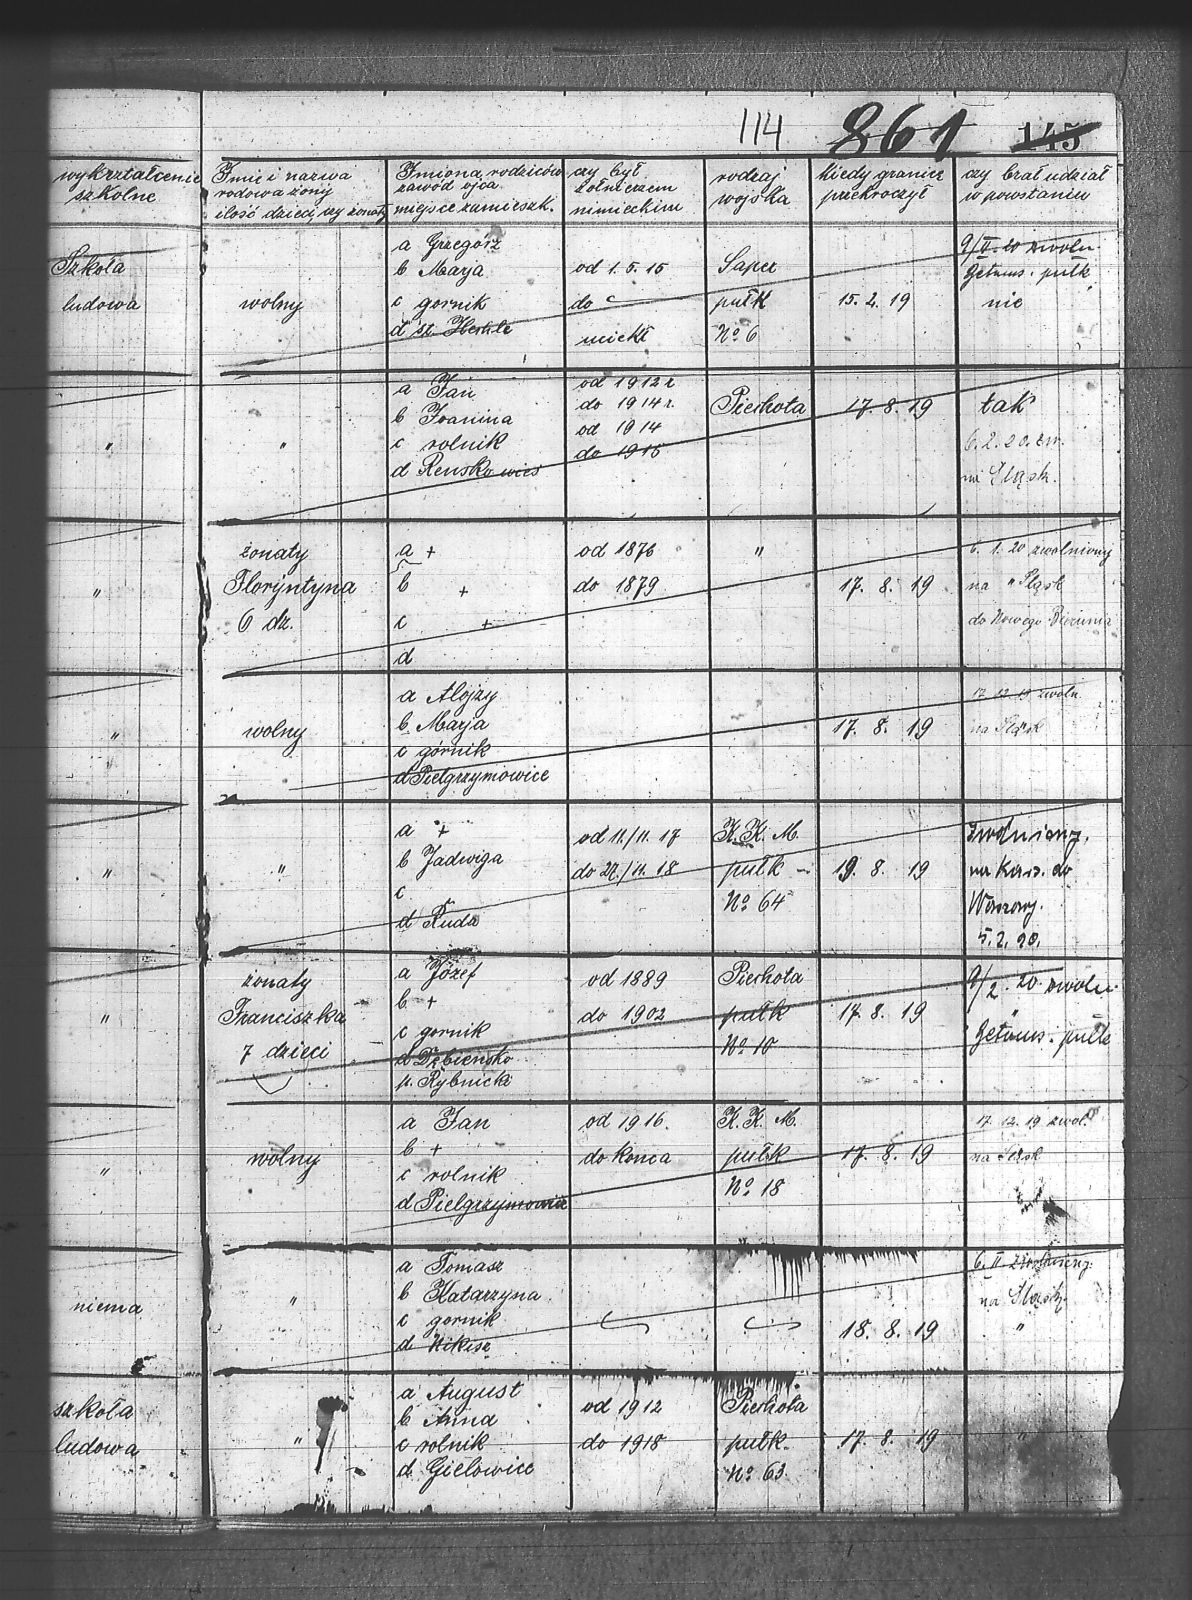 114 861 145
wykształcenie szkolne
Imię i nazwa rodowa żony ilość dzieci, czy żonaty
Imiona rodziców zawód ojca miejsce zamieszk.
czy był żołnierzem niemieckim
rodzaj wojska
kiedy granicę przekroczył
czy brał udział w powstaniu
Szkoła ludowa
wolny
a Grzegórz
b Marja
c gornik
d st.
od 1. 5. 15
do
uciekł
Saper
pułk
No 6
15. 2. 19
9/II. 20 zwoln
pułk
nie
"
"
a Jan
b Joanina
c rolnik
d
od 1912 r
do 1914 r.
od 1914
do 1915
Piechota
17. 8. 19
tak
6. 2. 20. zw.
na Śląsk.
"
żonaty
Floryntyna
6 dz.
a +
b +
c +
d
od 1876
do 1879
"
17. 8. 19
6. 1. 20 zwolniony
na " Śląsk
do Nowego Bierunia
"
wolny
a Alojzy
b. Marja
c górnik
d Pielgrzymowice
17. 8. 19
17. 12. 19 zwoln.
na Śląsk
"
"
"
a +
b Jadwiga
c
d Ruda
od 11./11. 17
do 27./11. 18
K. K. M.
pułk
No 64
19. 8. 19
zwolniony.
na do
5. 2. 20.
"
żonaty
Franciszka
7 dzieci
a Józef
b +
c gornik
d Dębieńsko
p. Rybnicki
od 1889
do 1902
Piechota
pułk
No 10
17. 8. 19
9/2. 20. zwoln.
pułk
"
wolny
a Jan
b +
c rolnik
d Pielgrzymowice
od 1916.
do konca
K. K. M.
pułk
No 18
17. 8. 19
17. 12. 19 zwol.
na Śląsk
niema
"
a Tomasz
b Katarzyna
c gornik
d
18. 8. 19
6. II. zwolniony.
na Śląsk.
"
szkoła
ludowa
"
a August
b Anna
c rolnik
d Gielowice
od 1912
do 1918
Piechota
pułk.
No 63
17. 8. 19
"